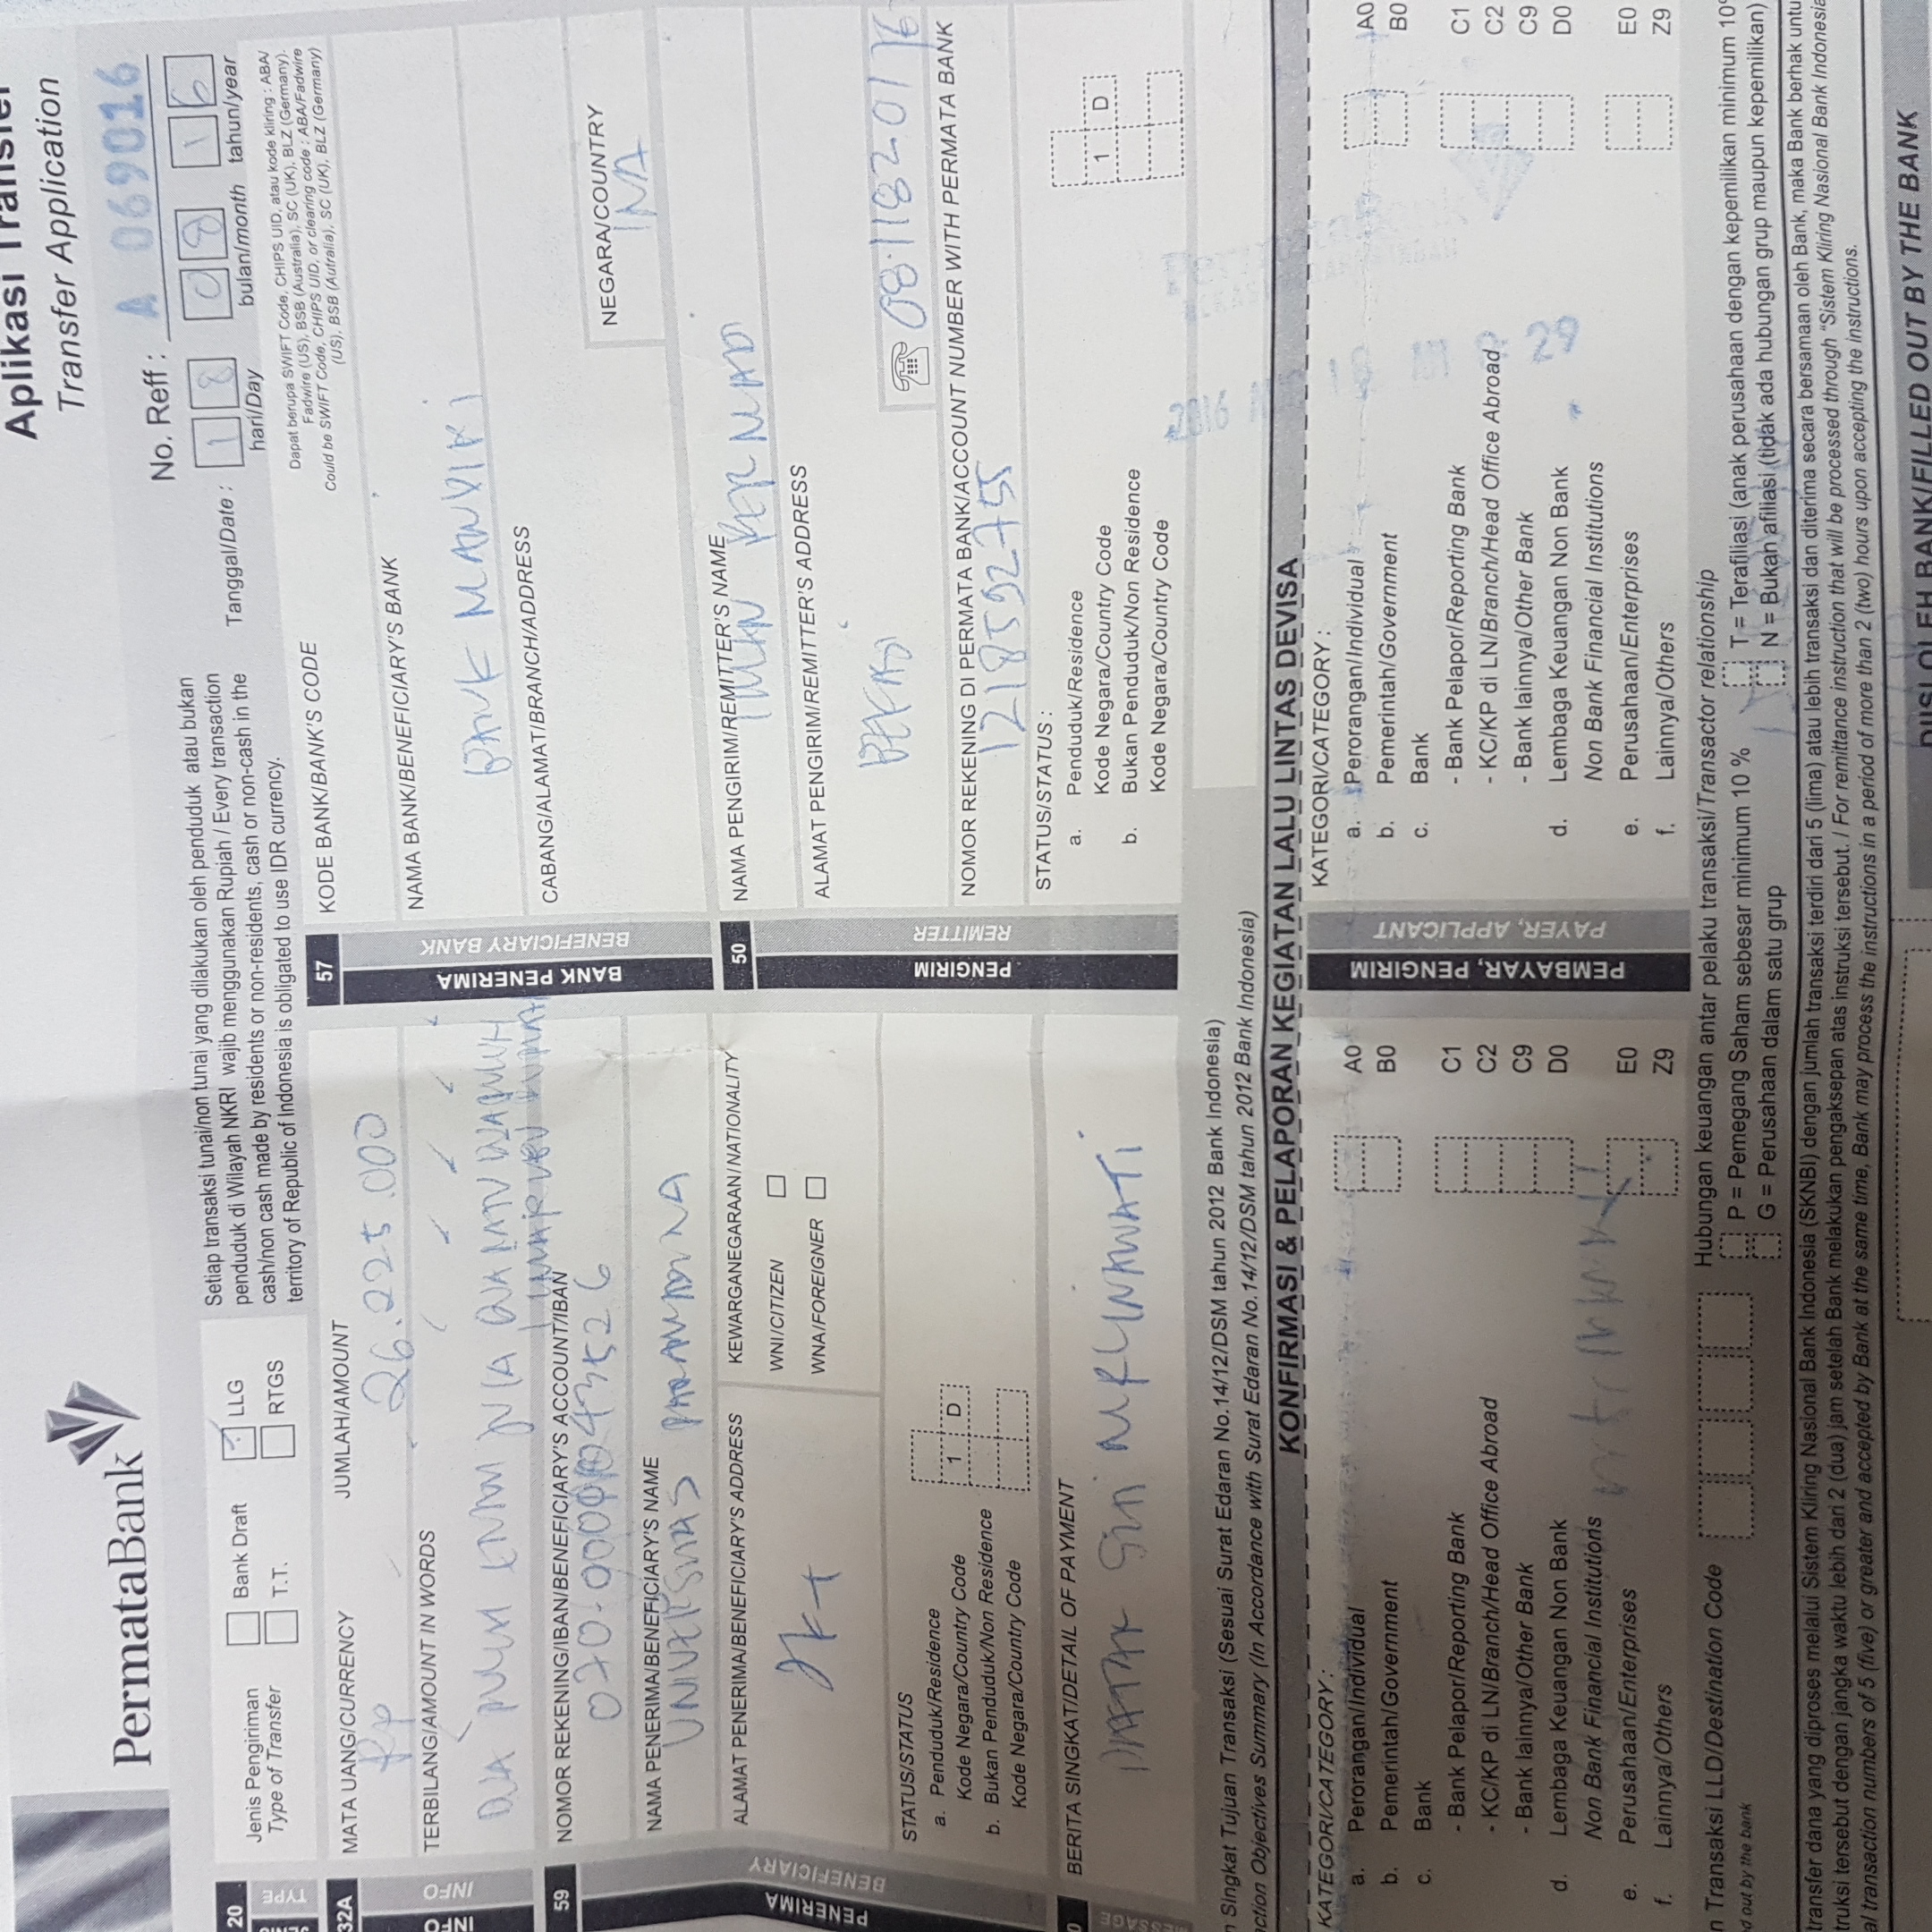 Aplikasi Transfer
Transfer Application
PermataBank
No. Reff : A 069016
Tanggal/Date : 18 08 16
hari/Day bulan/month tahun/year
20
TYPE
Jenis Pengiriman
Type of Transfer
Bank Draft
LLG
T.T.
RTGS
Setiap transaksi tunai/non tunai yang dilakukan oleh penduduk atau bukan
penduduk di Wilayah NKRI wajib menggunakan Rupiah / Every transaction
cash/non cash made by residents or non-residents, cash or non-cash in the
territory of Republic of Indonesia is obligated to use IDR currency.
Dapat berupa SWIFT Code, CHIPS UID, atau kode kliring : ABA/
Fadwire (US), BSB (Australia), SC (UK), BLZ (Germany).
Could be SWIFT Code, CHIPS UID, or clearing code : ABA/Fadwire
(US), BSB (Autralia), SC (UK), BLZ (Germany)
32A
INFO
INFO
MATA UANG/CURRENCY JUMLAH/AMOUNT
Rp 26.225.000
TERBILANG/AMOUNT IN WORDS
DUA PULUH ENAM JUTA DUA RATUS DUA PULUH
LIMA RIBU RUPIAH
59
PENERIMA
BENEFICIARY
NOMOR REKENING/IBAN/BENEFICIARY'S ACCOUNT/IBAN
NAMA PENERIMA/BENEFICIARY'S NAME
UNIVERSITAS PARAMADINA
ALAMAT PENERIMA/BENEFICIARY'S ADDRESS
JKT
KEWARGANEGARAAN/NATIONALITY
WNI/CITIZEN
WNA/FOREIGNER
STATUS/STATUS
a. Penduduk/Residence
Kode Negara/Country Code 1 D
b. Bukan Penduduk/Non Residence
Kode Negara/Country Code
MESSAGE
BERITA SINGKAT/DETAIL OF PAYMENT
DAFTAR SITI
57
BANK PENERIMA
BENEFICIARY BANK
KODE BANK/BANK'S CODE
NAMA BANK/BENEFICIARY'S BANK
BANK MANDIRI
CABANG/ALAMAT/BRANCH/ADDRESS
NEGARA/COUNTRY
INA
50
PENGIRIM
REMITTER
NAMA PENGIRIM/REMITTER'S NAME
IMAN PERMADI
ALAMAT PENGIRIM/REMITTER'S ADDRESS
BEKASI
0811820176
NOMOR REKENING DI PERMATA BANK/ACCOUNT NUMBER WITH PERMATA BANK
1218592755
STATUS/STATUS :
a. Penduduk/Residence
Kode Negara/Country Code 1 D
b. Bukan Penduduk/Non Residence
Kode Negara/Country Code
n Singkat Tujuan Transaksi (Sesuai Surat Edaran No.14/12/DSM tahun 2012 Bank Indonesia)
ction Objectives Summary (In Accordance with Surat Edaran No.14/12/DSM tahun 2012 Bank Indonesia)
KONFIRMASI & PELAPORAN KEGIATAN LALU LINTAS DEVISA
KATEGORI/CATEGORY :
a. Perorangan/Individual A0
b. Pemerintah/Government B0
c. Bank
- Bank Pelapor/Reporting Bank C1
- KC/KP di LN/Branch/Head Office Abroad C2
- Bank lainnya/Other Bank C9
d. Lembaga Keuangan Non Bank D0
Non Bank Financial Institutions
e. Perusahaan/Enterprises E0
f. Lainnya/Others Z9
PEMBAYAR, PENGIRIM
PAYER, APPLICANT
KATEGORI/CATEGORY :
a. Perorangan/Individual A0
b. Pemerintah/Government B0
c. Bank
- Bank Pelapor/Reporting Bank C1
- KC/KP di LN/Branch/Head Office Abroad C2
- Bank lainnya/Other Bank C9
d. Lembaga Keuangan Non Bank D0
Non Bank Financial Institutions
e. Perusahaan/Enterprises E0
f. Lainnya/Others Z9
n Transaksi LLD/Destination Code
ed out by the bank
Hubungan keuangan antar pelaku transaksi/Transactor relationship
P = Pemegang Saham sebesar minimum 10 %
G = Perusahaan dalam satu grup
T = Terafiliasi (anak perusahaan dengan kepemilikan minimum 10
N = Bukan afiliasi (tidak ada hubungan grup maupun kepemilikan)
transfer dana yang diproses melalui Sistem Kliring Nasional Bank Indonesia (SKNBI) dengan jumlah transaksi terdiri dari 5 (lima) atau lebih transaksi dan diterima secara bersamaan oleh Bank, maka Bank berhak untu
truksi tersebut dengan jangka waktu lebih dari 2 (dua) jam setelah Bank melakukan pengaksepan atas instruksi tersebut. / For remittance instruction that will be processed through “Sistem Kliring Nasional Bank Indonesia
al transaction numbers of 5 (five) or greater and accepted by Bank at the same time, Bank may process the instructions in a period of more than 2 (two) hours upon accepting the instructions.
DIISI OLEH BANK/FILLED OUT BY THE BANK